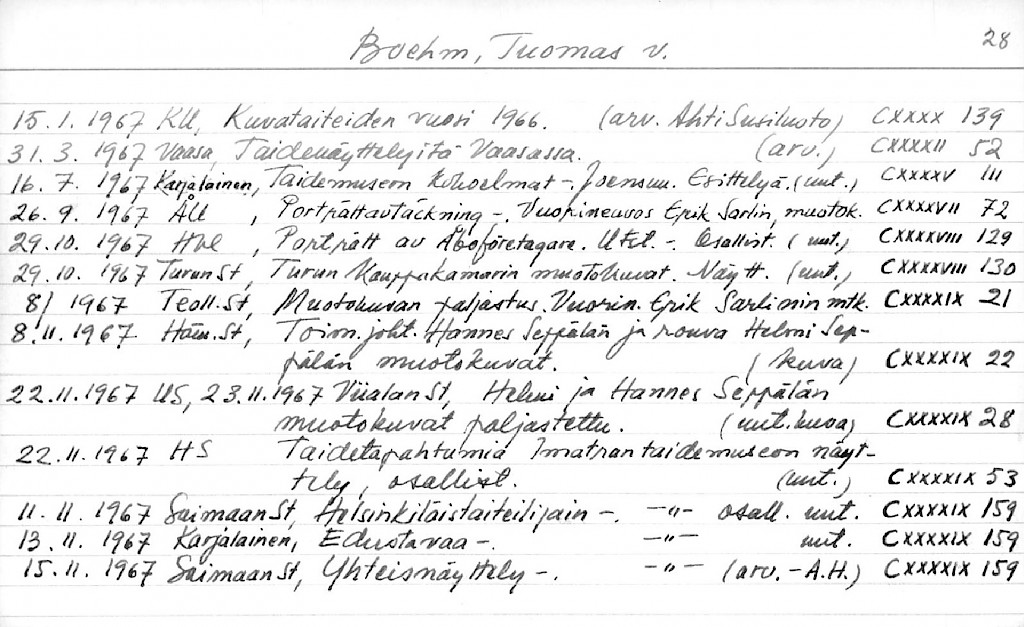 28
Boehm, Tuomas v.
15.1.1967 KU, Kuvataiteiden vuosi 1966. (arv. Ahti Susiluoto) CXXXX 139
31.3.1967 Vaasa, Taidenäyttelyitä Vaasassa. (arv.) CXXXXII 52
16.7.1967 Karjalainen, Taidemuseon kokoelmat -. Joensuu. Esittelyä. (uut.) CXXXXV 111
26.9.1967 ÅU, Porträttavtäckning -. Vuorineuvos Erik Sarlin, muotok. CXXXXVII 72
29.10.1967 Hbl, Porträtt av Åboföretagare. Utst. -. Osallist. (uut.) CXXXXVIII 129
29.10.1967 TurunSt, Turun Kauppakamarin muotokuvat. Näytt. (uut.) CXXXXVIII 130
8/ 1967 Teoll.St, Muotokuvan paljastus. Vuorin. Erik Sarlinin mtk. CXXXXIX 21
8.11.1967 Häm.St, Toim.joht. Hannes Seppälän ja rouva Helmi Sep-
pälän muotokuvat. (kuva) CXXXXIX 22
22.11.1967 US, 23.11.1967 ViialanSt, Helmi ja Hannes Seppälän
muotokuvat paljastettu. (uut. kuva) CXXXXIX 28
22.11.1967 HS Taidetapahtumia Imatran taidemuseon näyt-
tely, osallist. (uut.) CXXXXIX 53
11.11.1967 SaimaanSt, Helsinkiläistaiteilijain -. -"- osall. uut. CXXXXIX 159
13.11.1967 Karjalainen, Edustavaa -. -"- uut. CXXXXIX 159
15.11.1967 SaimaanSt, Yhteisnäyttely -. -"- (arv. - A.H.) CXXXXIX 159